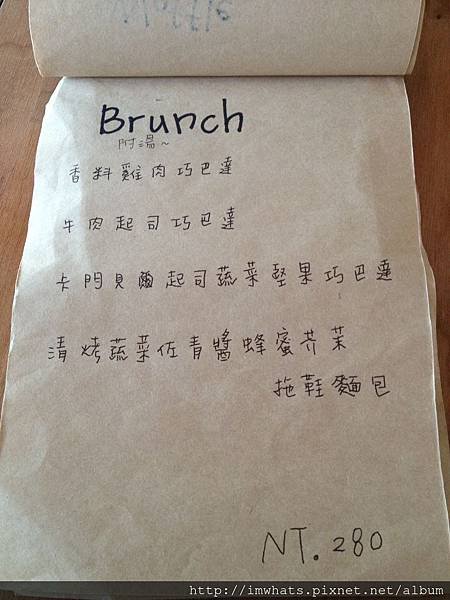 Brunch
附湯~
香料雞肉巧巴達
牛肉起司巧巴達
卡門貝爾起司蔬菜堅果巧巴達
清烤蔬菜佐青醬蜂蜜芥茉
拖鞋麵包
NT. 280
http://imwhats.pixnet.net/album